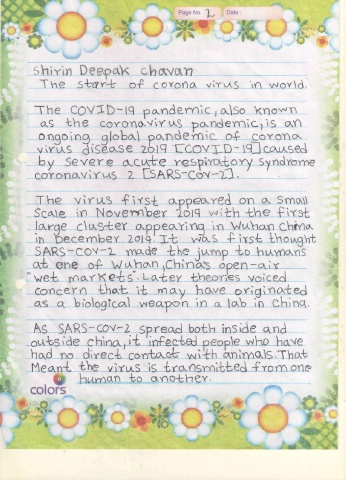 Page No. 2 Date:
Shirin Deepak chavan
The start of corona virus in world.
The COVID-19 pandemic, also known
as the coronavirus pandemic, is an
ongoing global pandemic of corona
virus disease 2019 [COVID-19] caused
by severe acute respiratory syndrome
coronavirus 2 [SARS-CoV-2].
The virus first appeared on a small
Scale in November 2019 with the first
large cluster appearing in Wuhan China
in December 2019. It was first thought
SARS-COV-2 made the jump to humans
at one of Wuhan, China's open-air
"wet markets". Later theories voiced
concern that it may have originated
as a biological weapon in a lab in China.
As SARS-COV-2 spread both inside and
outside china, it infected people who have
had no direct contact with animals. That
Meant the virus is transmitted from one
human to another.
colors